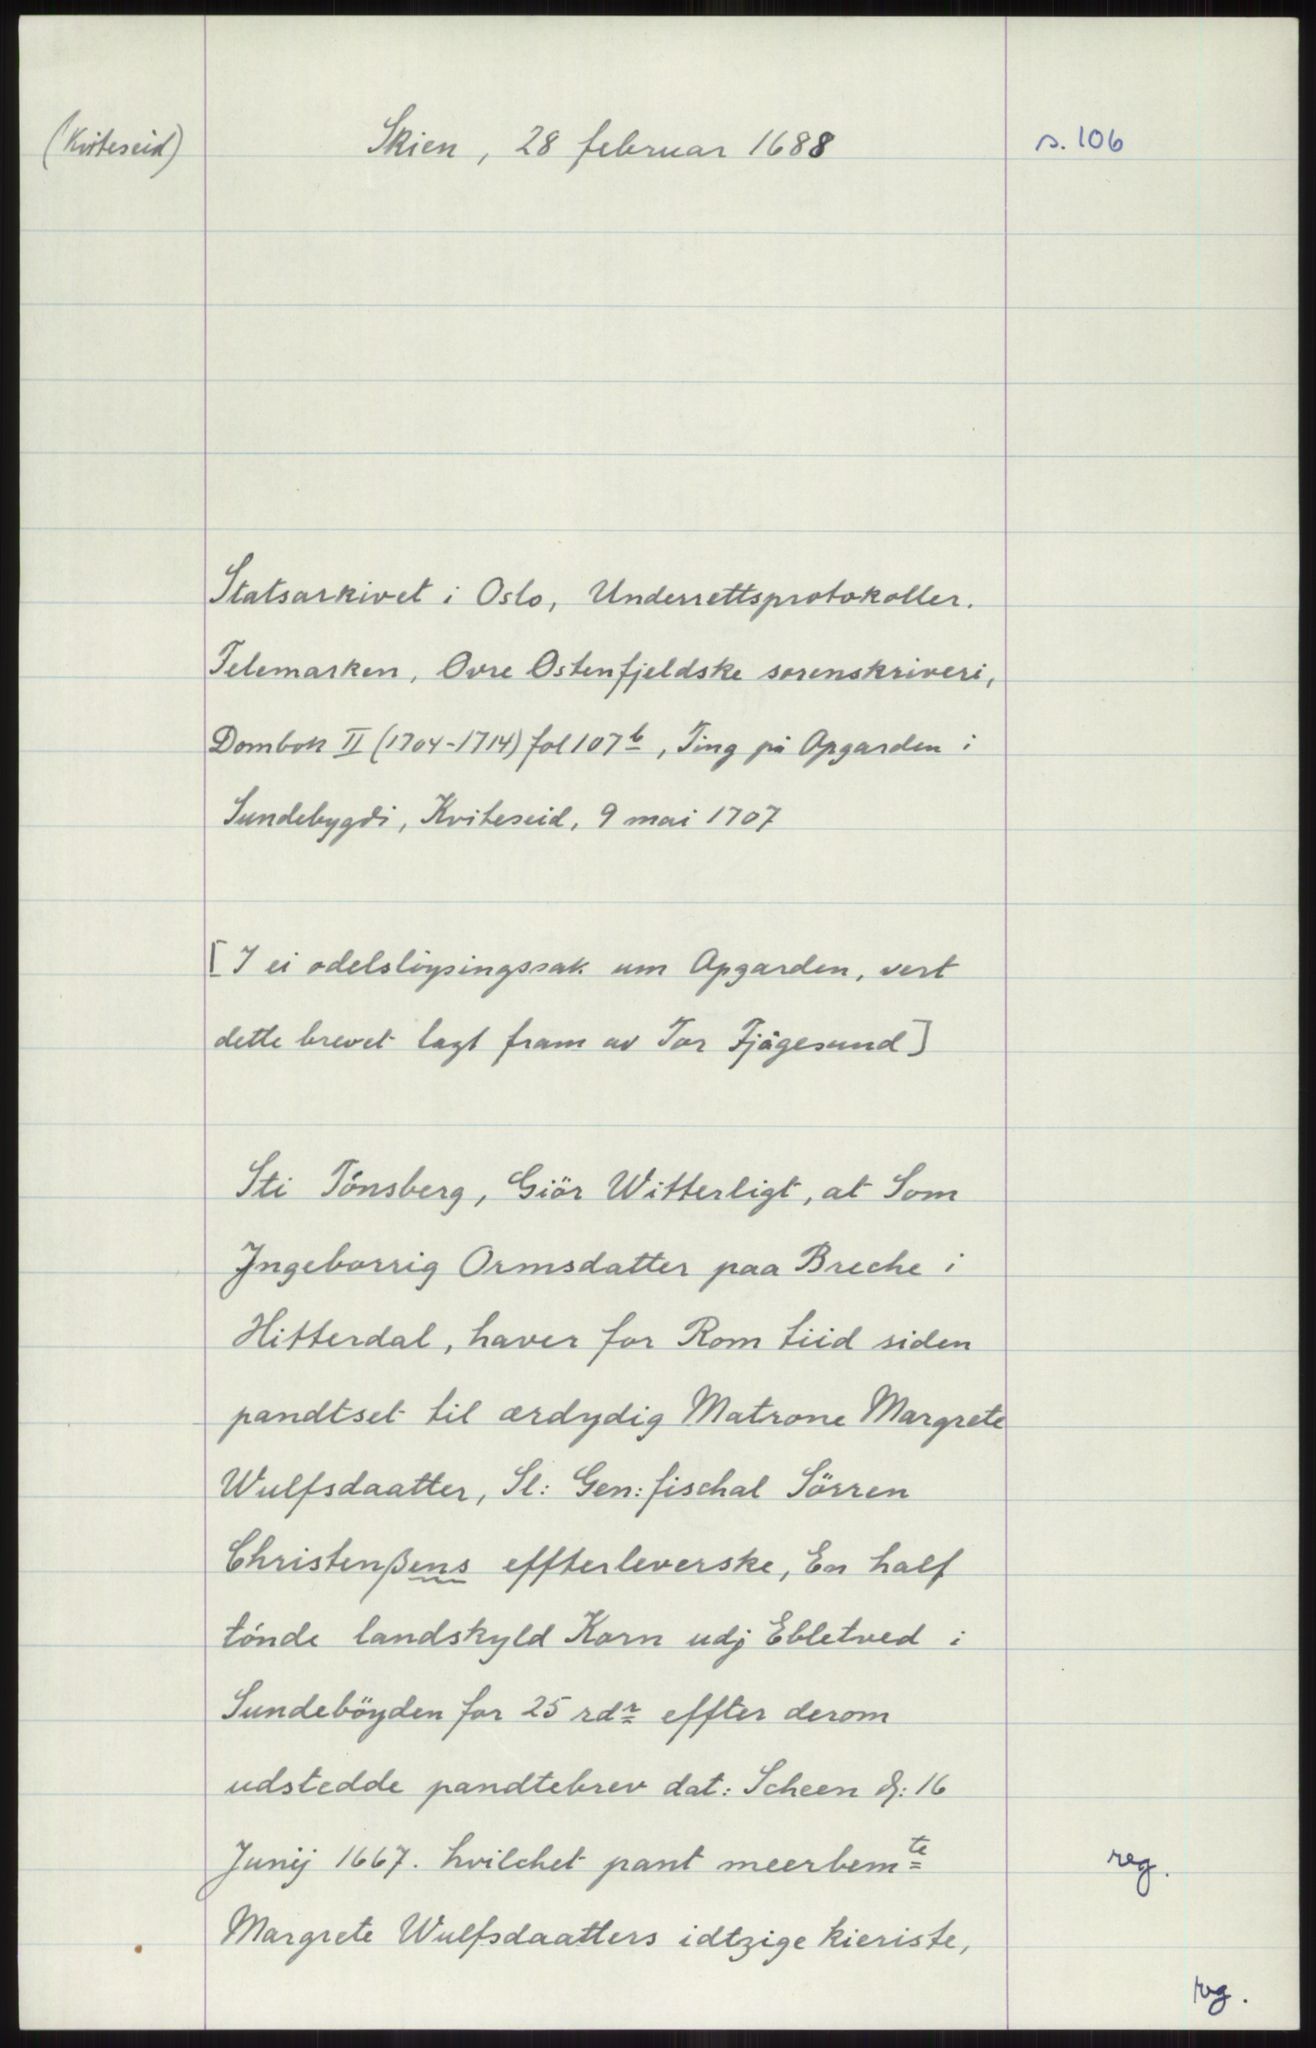 (Kviteseid)
Skien, 28 februar 1688
s. 106
Statsarkivet i Oslo, Underrettsprotokoller.
Telemarken, Øvre Østenfjeldske sorenskriveri,
Dombok II (1704-1714) fol 107 b, Ting på Apgarden i
Sundebygdi, Kviteseid, 9 mai 1707
[I ei odelsløysingssak um Apgarden, vert
dette brevet lagt fram av Tor Fjågesund]
Sti Tönsberg, Giör Witterligt, at Som
Jngeborrig Ormsdatter paa Breche i
Hitterdal, haver for Rom tiid siden
pandtset til ærdydig Matrone Margrete
Wulfsdaatter, Sl: Gen: fischal Sörren
Christenßens effterleverske, En half
tönde landskyld Korn udj Ebletved i
Sundeböyden for 25 rdr effter derom
udstedde pandtebrev dat: Scheen d: 16
Junij 1667. hvilchet pant meerbemte
reg.
Margrete Wulfsdaatters idtzige kieriste,
reg.